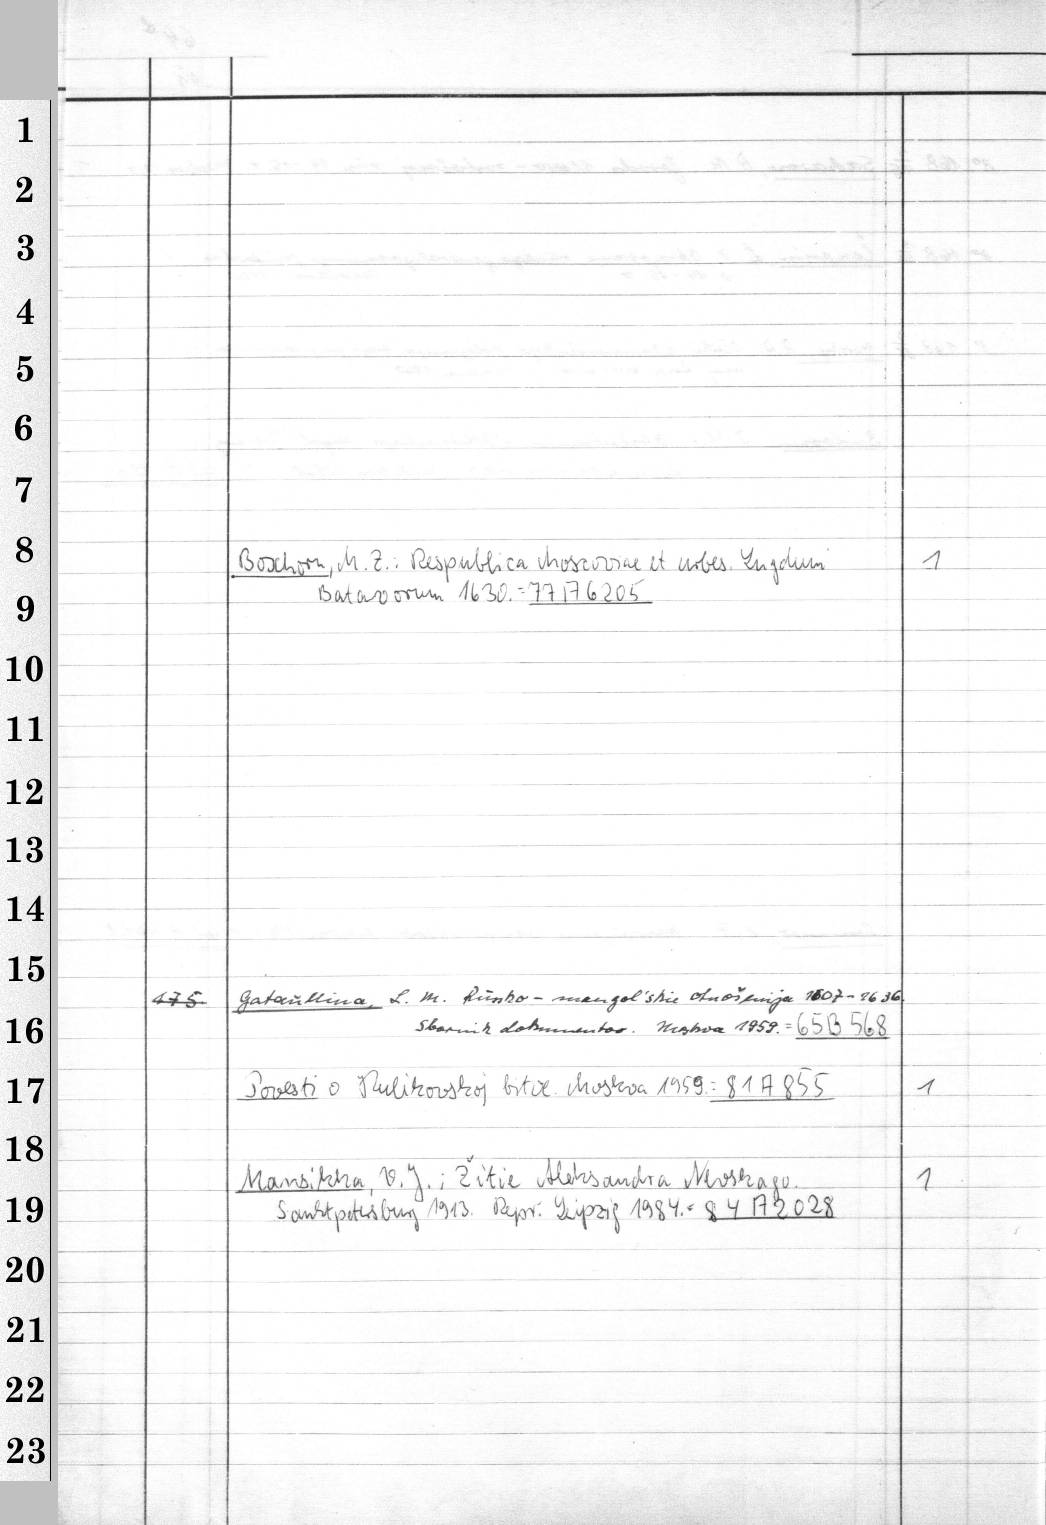 1
2
3
4
5
6
7
8
Boxhorn, M. Z.: Respublica Moscoviae et urbes. Lugduni 1
9
Batavorum 1630. = 77/76205
10
11
12
13
14
15
475 Gataullina, L. M. Russko-mongol'skie otnošenija 1607-1636.
16
Sbornik dokumentov. Moskva 1959. = 65B568
17
Povesti o Kulikovskoj bitve. Moskva 1959. = 81A855 1
18
Mansikka, V. J.: Žitie Aleksandra Nevskago. 1
19
Sanktpetersburg 1913. Repr. Leipzig 1984. = 84A2028
20
21
22
23